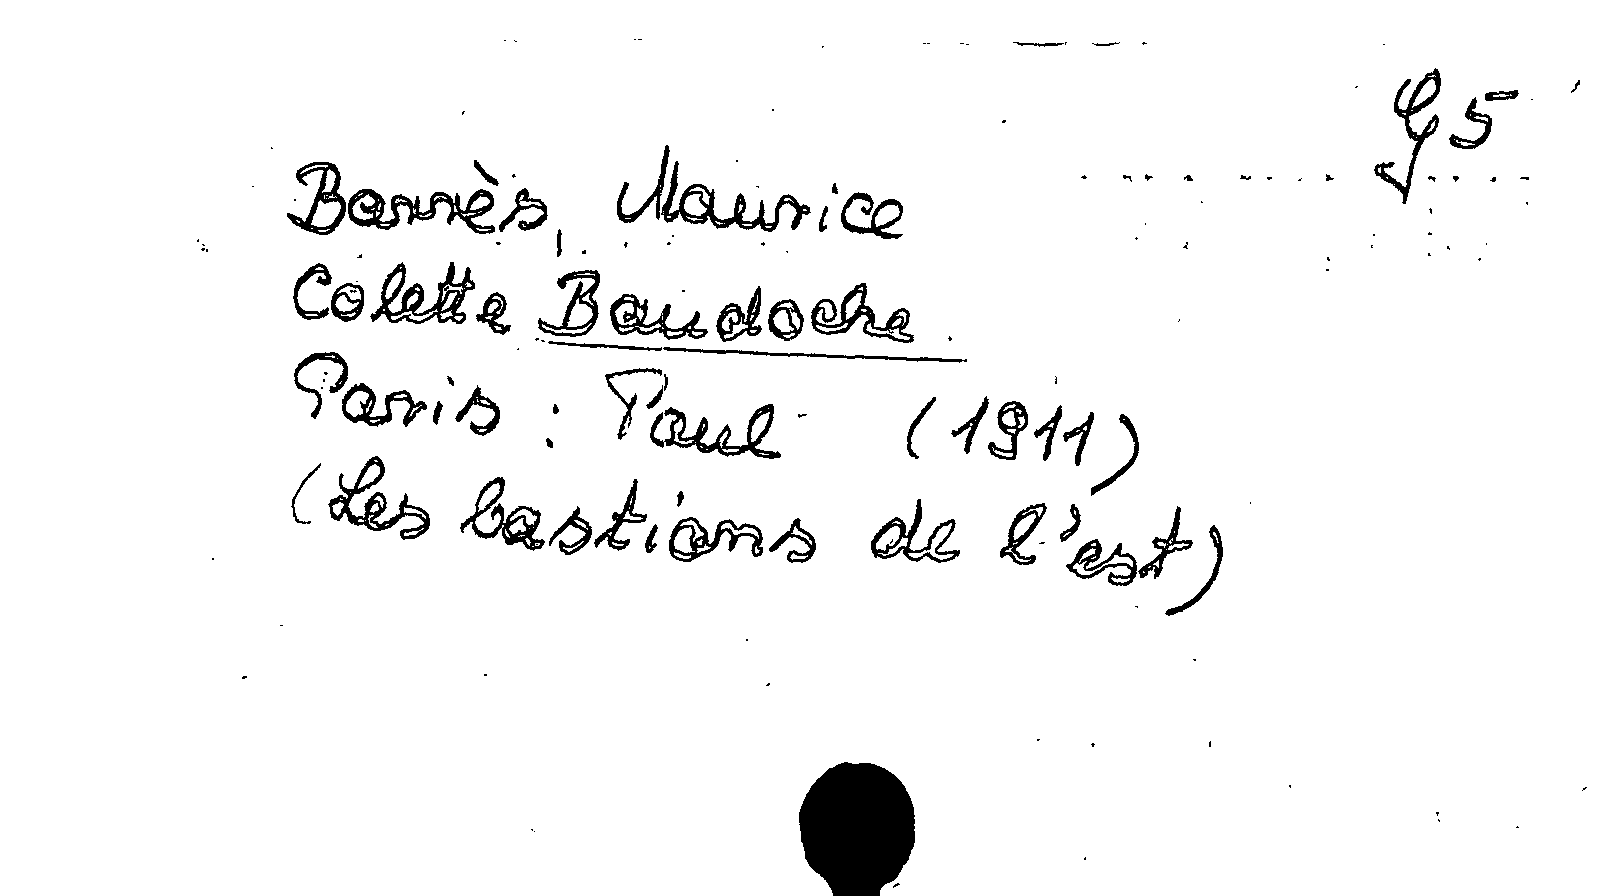 G5
Barrès, Maurice
Colette Baudoche
Paris : Paul (1911)
(Les bastions de l'est)